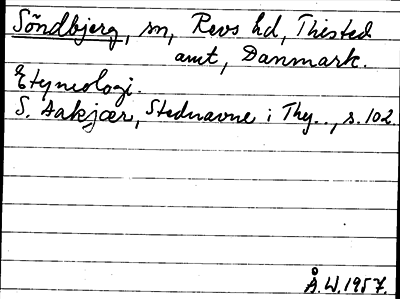 Söndbjerg, sn, Revs hd, Thisted
amt, Danmark.
Etymologi.
S. Aakjær, Stednavne i Thy.., s. 102.
Å.W. 1957.